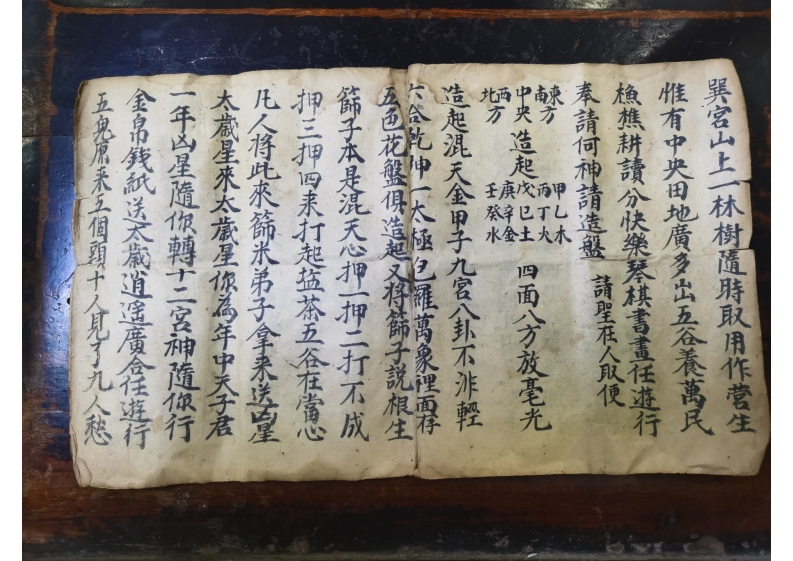 巽宮山上一林樹隨時取用作营生
惟有中央田地廣多出五谷養萬民
漁樵耕讀分快樂琴棋書畫任遊行
奉請何神請造盤 請聖在人取便
東南方中央西北方 造起 甲乙木丙丁火戊己土庚辛金壬癸水 四面八方放毫光
造起混天金甲子九宮八卦不非輕
六合乾坤一太極包羅萬象裡面存
五色花盤俱造起又将篩子説根生
篩子本是混天心押一押二打不成
押三押四来打起盐茶五谷在當心
凡人將此來篩米弟子拿来送凶星
太歲星來太歲星你為年中天子君
一年凶星隨你轉十二宮神隨你行
金帛錢紙送太歲逍遥廣合任遊行
五鬼原来五個頭十人見了九人愁